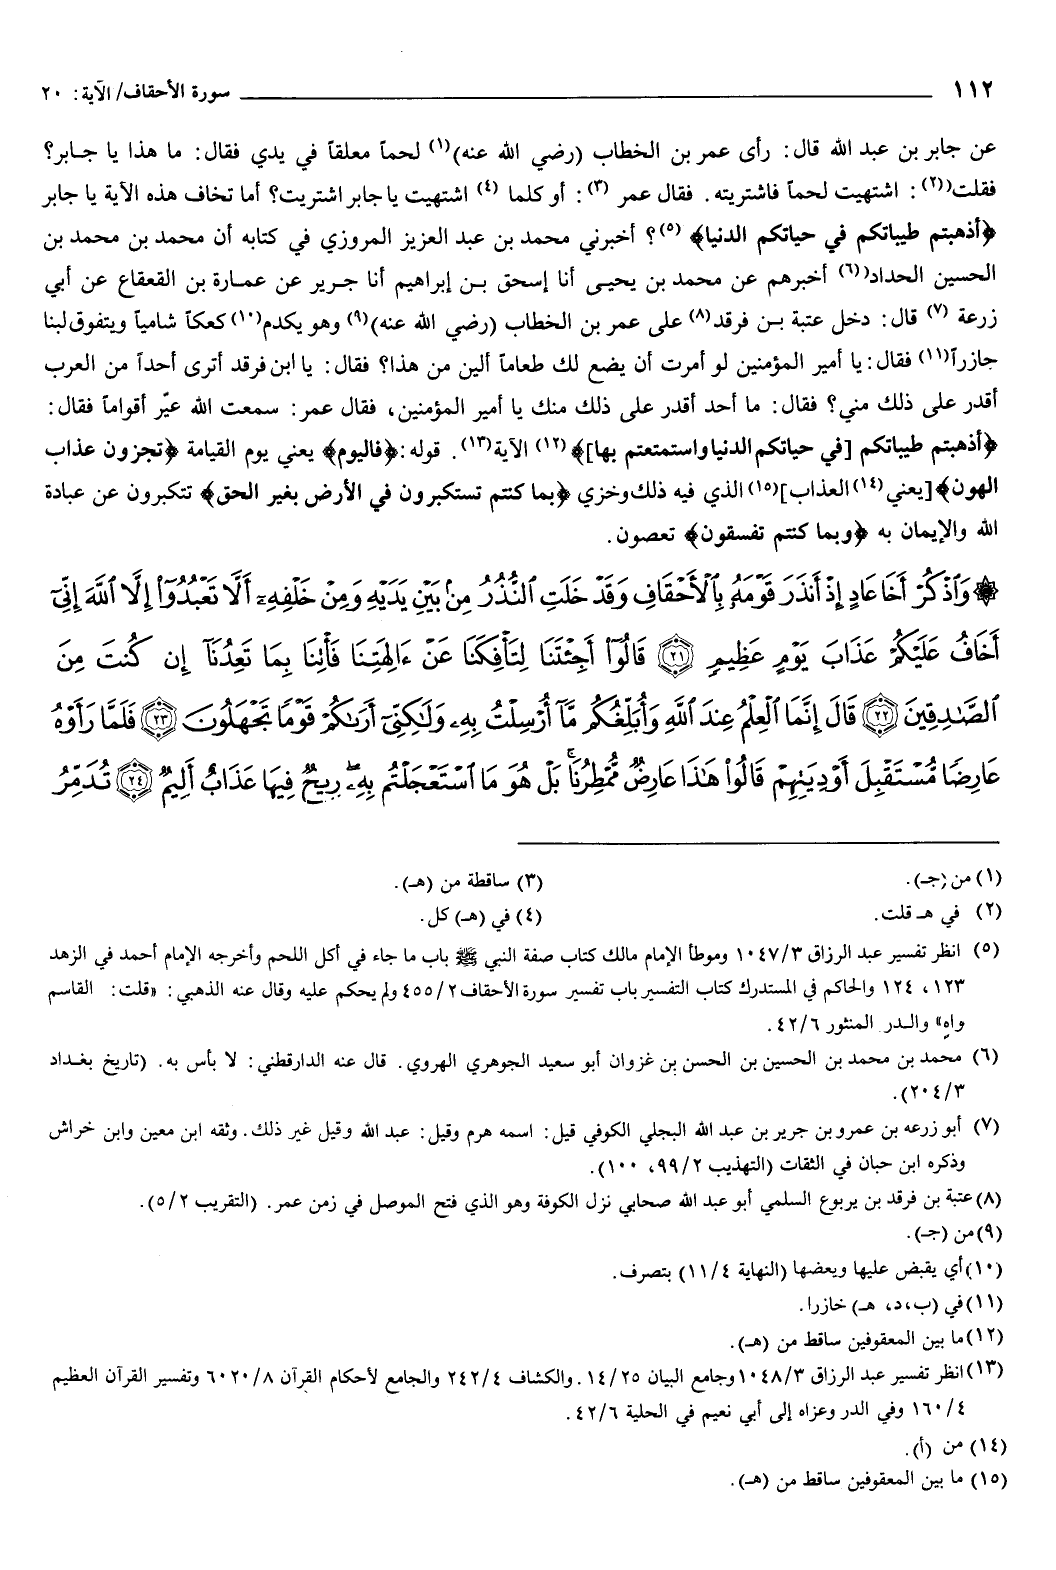 ١١٢ سورة الأحقاف/ الآية: ٢٠
عن جابر بن عبد الله قال: رأى عمر بن الخطاب (رضي الله عنه)(١) لحماً معلقاً في يدي فقال: ما هذا يا جابر؟
فقلت(٢): اشتهيت لحماً فاشتريته. فقال عمر (٣): أو كلما (٤) اشتهيت يا جابر اشتريت؟ أما تخاف هذه الآية يا جابر
﴿أذهبتم طيباتكم في حياتكم الدنيا﴾ (٥)؟ أخبرني محمد بن عبد العزيز المروزي في كتابه أن محمد بن محمد بن
الحسين الحداد(٦) أخبرهم عن محمد بن يحيى أنا إسحق بن إبراهيم أنا جرير عن عمارة بن القعقاع عن أبي
زرعة (٧) قال: دخل عتبة بن فرقد(٨) على عمر بن الخطاب (رضي الله عنه)(٩) وهو يكدم(١٠) كعكاً شامياً ويتفوق لبنا
جازراً(١١) فقال: يا أمير المؤمنين لو أمرت أن يضع لك طعاماً ألين من هذا؟ فقال: يا ابن فرقد أترى أحداً من العرب
أقدر على ذلك مني؟ فقال: ما أحد أقدر على ذلك منك يا أمير المؤمنين، فقال عمر: سمعت الله عيّر أقواماً فقال:
﴿أذهبتم طيباتكم [في حياتكم الدنيا واستمتعتم بها]﴾ (١٢) الآية(١٣). قوله: ﴿فاليوم﴾ يعني يوم القيامة ﴿تجزون عذاب
الهون﴾ [يعني(١٤) العذاب](١٥) الذي فيه ذلك وخزي ﴿بما كنتم تستكبرون في الأرض بغير الحق﴾ تتكبرون عن عبادة
الله والإيمان به ﴿وبما كنتم تفسقون﴾ تعصون.
۞ وَٱذْكُرْ أَخَا عَادٍ إِذْ أَنذَرَ قَوْمَهُۥ بِٱلْأَحْقَافِ وَقَدْ خَلَتِ ٱلنُّذُرُ مِنۢ بَيْنِ يَدَيْهِ وَمِنْ خَلْفِهِۦٓ أَلَّا تَعْبُدُوٓا۟ إِلَّا ٱللَّهَ إِنِّىٓ
أَخَافُ عَلَيْكُمْ عَذَابَ يَوْمٍ عَظِيمٍ ﴿٢١﴾ قَالُوٓا۟ أَجِئْتَنَا لِتَأْفِكَنَا عَنْ ءَالِهَتِنَا فَأْتِنَا بِمَا تَعِدُنَآ إِن كُنتَ مِنَ
ٱلصَّٰدِقِينَ ﴿٢٢﴾ قَالَ إِنَّمَا ٱلْعِلْمُ عِندَ ٱللَّهِ وَأُبَلِّغُكُم مَّآ أُرْسِلْتُ بِهِۦ وَلَٰكِنِّىٓ أَرَىٰكُمْ قَوْمًا تَجْهَلُونَ ﴿٢٣﴾ فَلَمَّا رَأَوْهُ
عَارِضًا مُّسْتَقْبِلَ أَوْدِيَتِهِمْ قَالُوا۟ هَٰذَا عَارِضٌ مُّمْطِرُنَا ۚ بَلْ هُوَ مَا ٱسْتَعْجَلْتُم بِهِۦ ۖ رِيحٌ فِيهَا عَذَابٌ أَلِيمٌ ﴿٢٤﴾ تُدَمِّرُ
(١) من (جـ).
(٢) في هـ قلت.
(٣) ساقطة من (هـ).
(٤) في (هـ) كل.
(٥) انظر تفسير عبد الرزاق ١٠٤٧/٣ وموطأ الإمام مالك كتاب صفة النبي ﷺ باب ما جاء في أكل اللحم وأخرجه الإمام أحمد في الزهد
١٢٣، ١٢٤ والحاكم في المستدرك كتاب التفسير باب تفسير سورة الأحقاف ٤٥٥/٢ ولم يحكم عليه وقال عنه الذهبي: «قلت: القاسم
واهٍ» والدر المنثور ٤٢/٦.
(٦) محمد بن محمد بن الحسين بن الحسن بن غزوان أبو سعيد الجوهري الهروي. قال عنه الدارقطني: لا بأس به. (تاريخ بغداد
٢٠٤/٣).
(٧) أبو زرعه بن عمرو بن جرير بن عبد الله البجلي الكوفي قيل: اسمه هرم وقيل: عبد الله وقيل غير ذلك. وثقه ابن معين وابن خراش
وذكره ابن حبان في الثقات (التهذيب ٩٩/٢، ١٠٠).
(٨) عتبة بن فرقد بن يربوع السلمي أبو عبد الله صحابي نزل الكوفة وهو الذي فتح الموصل في زمن عمر. (التقريب ٥/٢).
(٩) من (جـ).
(١٠) أي يقبض عليها ويعضها (النهاية ١١/٤) بتصرف.
(١١) في (ب، د، هـ) خازرا.
(١٢) ما بين المعقوفين ساقط من (هـ).
(١٣) انظر تفسير عبد الرزاق ١٠٤٨/٣ وجامع البيان ١٤/٢٥. والكشاف ٢٤٢/٤ والجامع لأحكام القرآن ٦٠٢٠/٨ وتفسير القرآن العظيم
١٦٠/٤ وفي الدر وعزاه إلى أبي نعيم في الحلية ٤٢/٦.
(١٤) من (أ).
(١٥) ما بين المعقوفين ساقط من (هـ).